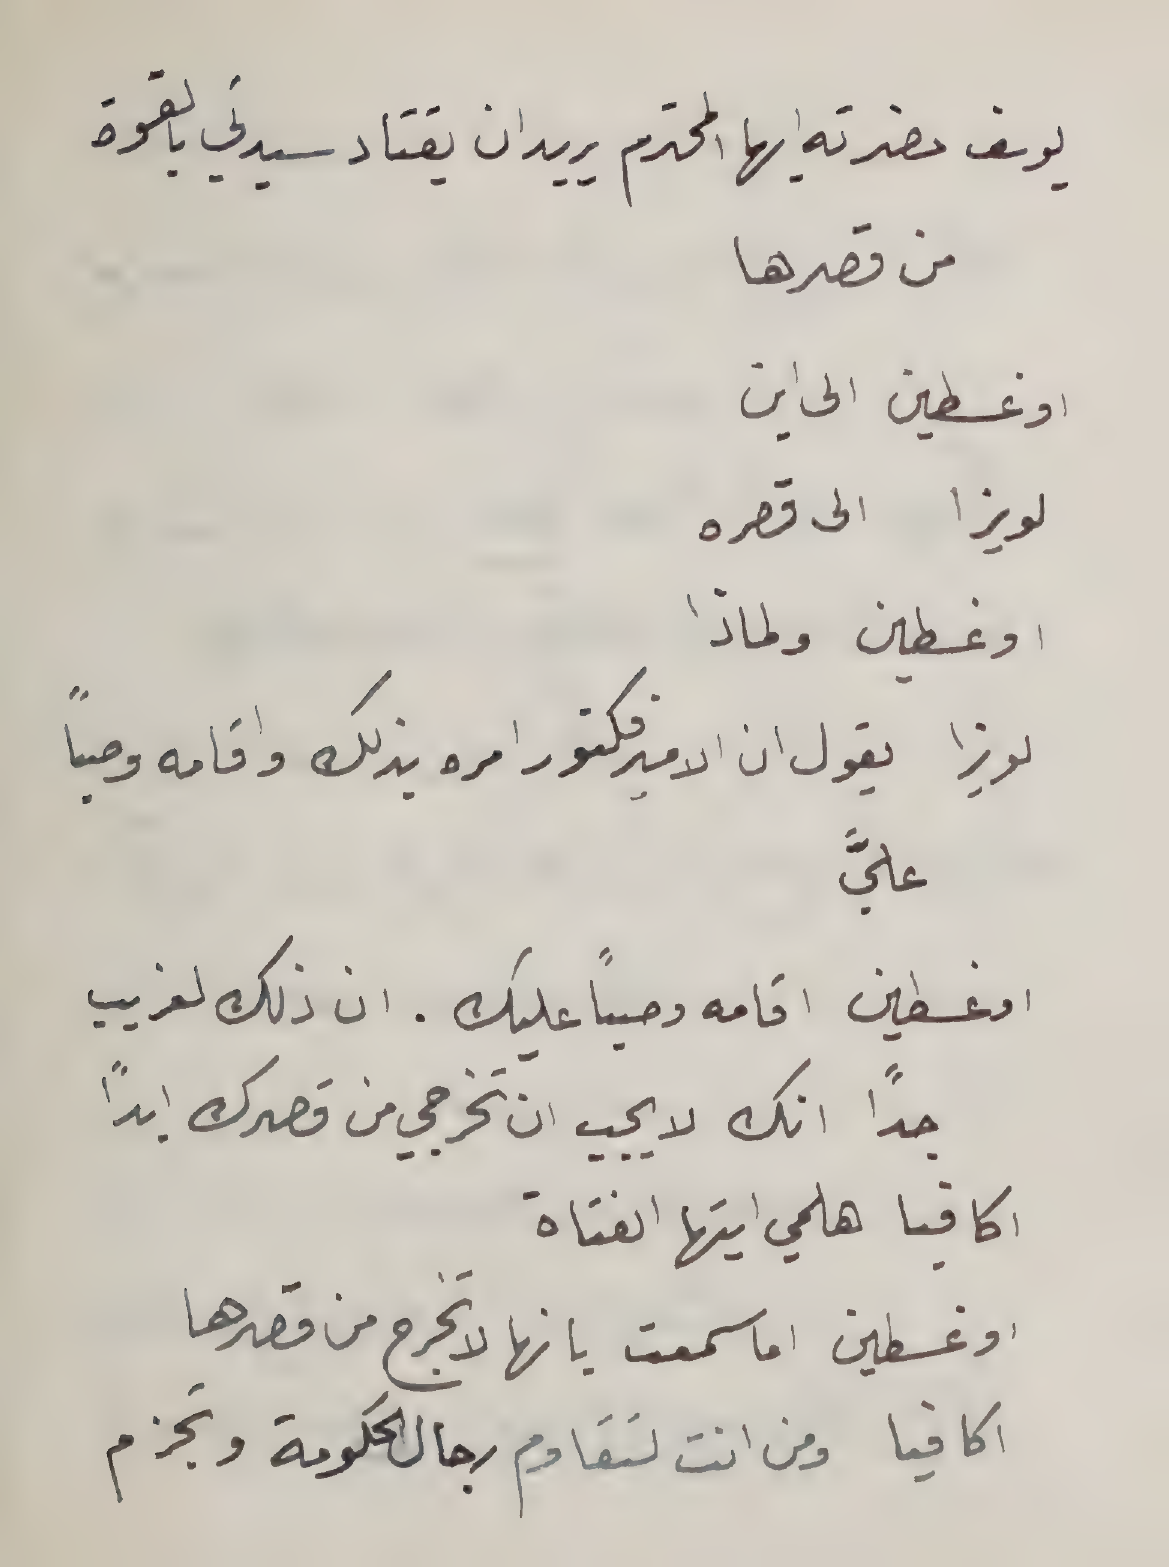 يوسف حضرته ايها المحترم يريد ان يقتاد سيدتي بالقوة
من قصرها
اوغسطين الى اين
لويزا الى قصره
اوغسطين ولماذا
لويزا يقول ان الامير فكتور امره بذلك واقامه وصياً
عليَّ
اوغسطين اقامه وصياً عليك . ان ذلك لغريب
جداً انك لا يجب ان تخرجي من قصرك ابداً
اكافيا هلمي ايتها الفتاة
اوغسطين اما سمعت بانها لا تخرج من قصرها
اكافيا ومن انت لتقاوم رجال الحكومة وتجزم